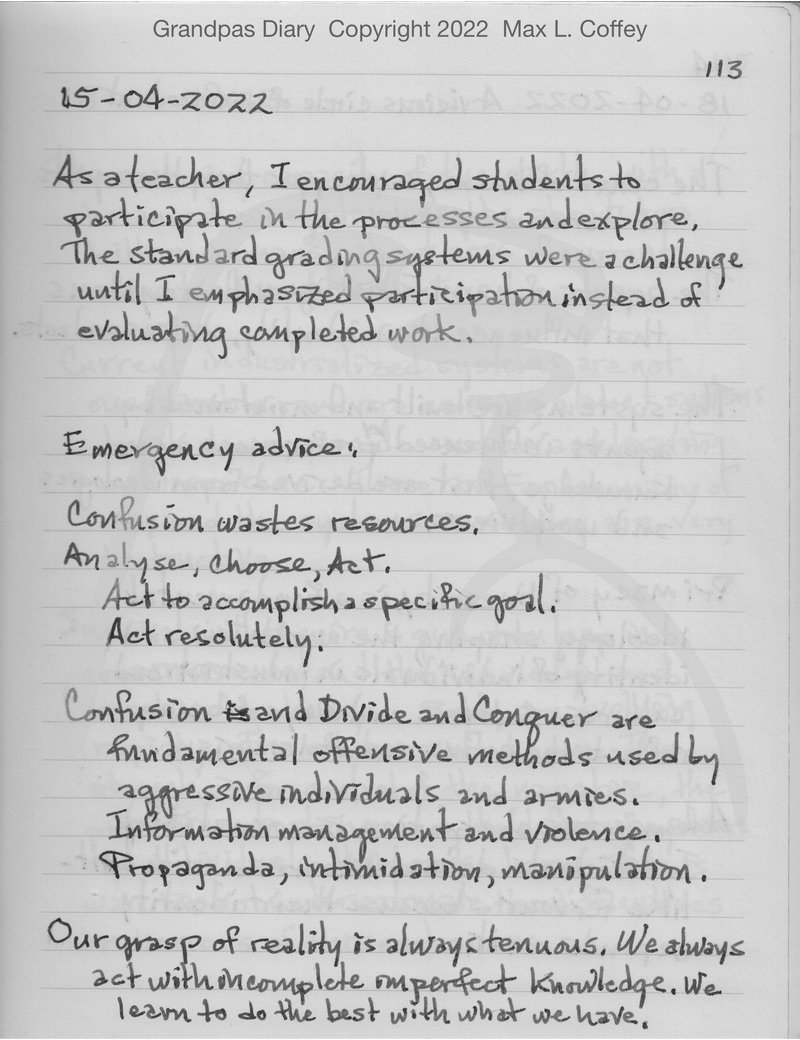 Grandpas Diary Copyright 2022 Max L. Coffey
113
15-04-2022
As a teacher, I encouraged students to
participate in the processes and explore.
The standard grading systems were a challenge
until I emphasized participation instead of
evaluating completed work.
Emergency advice:
Confusion wastes resources.
Analyse, choose, Act.
Act to accomplish a specific goal.
Act resolutely.
Confusion is and Divide and Conquer are
fundamental offensive methods used by
aggressive individuals and armies.
Information management and violence.
Propaganda, intimidation, manipulation.
Our grasp of reality is always tenuous. We always
act with incomplete imperfect knowledge. We
learn to do the best with what we have.